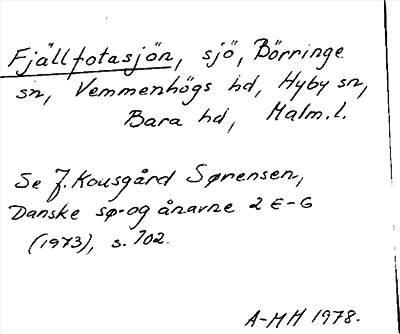 Fjällfotasjön, sjö, Börringe
sn, Vemmenhögs hd, Hyby sn,
Bara hd, Malm.l.
Se J. Kousgård Sørensen,
Danske sø- og ånavne 2 E-G
(1973), s. 102.
A-MH 1978.